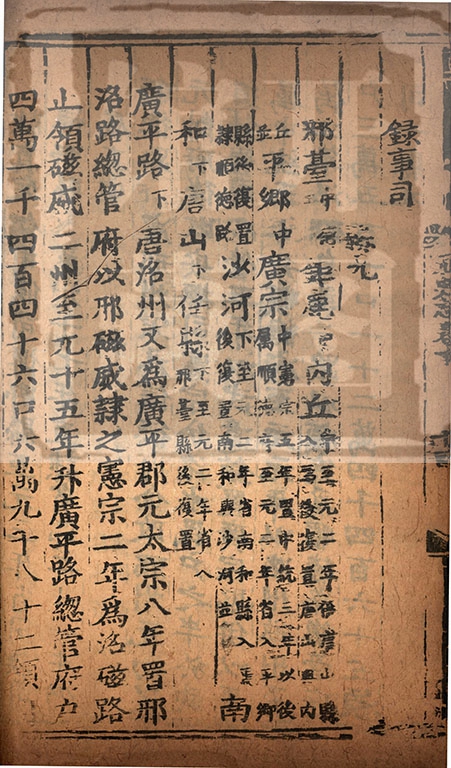 錄事司
縣九
邢臺中倚郭鉅鹿中內丘中至元二年併唐山縣入焉後復置唐山與內
丘並平鄉中廣宗中憲宗五年置中統三年以後屬順德府至元二年省入平鄉
縣後復置隸順德路沙河下至元二年省南和縣入焉後復置南和與沙河並南
和下唐山下任縣下至元二年省入邢臺縣後復置
廣平路下唐洺州又爲廣平郡元太宗八年置邢
洺路總管府以邢磁威隸之憲宗二年爲洺磁路
止領磁威二州至元十五年升廣平路總管府戶
四萬一千四百四十六口六萬九千八十二領